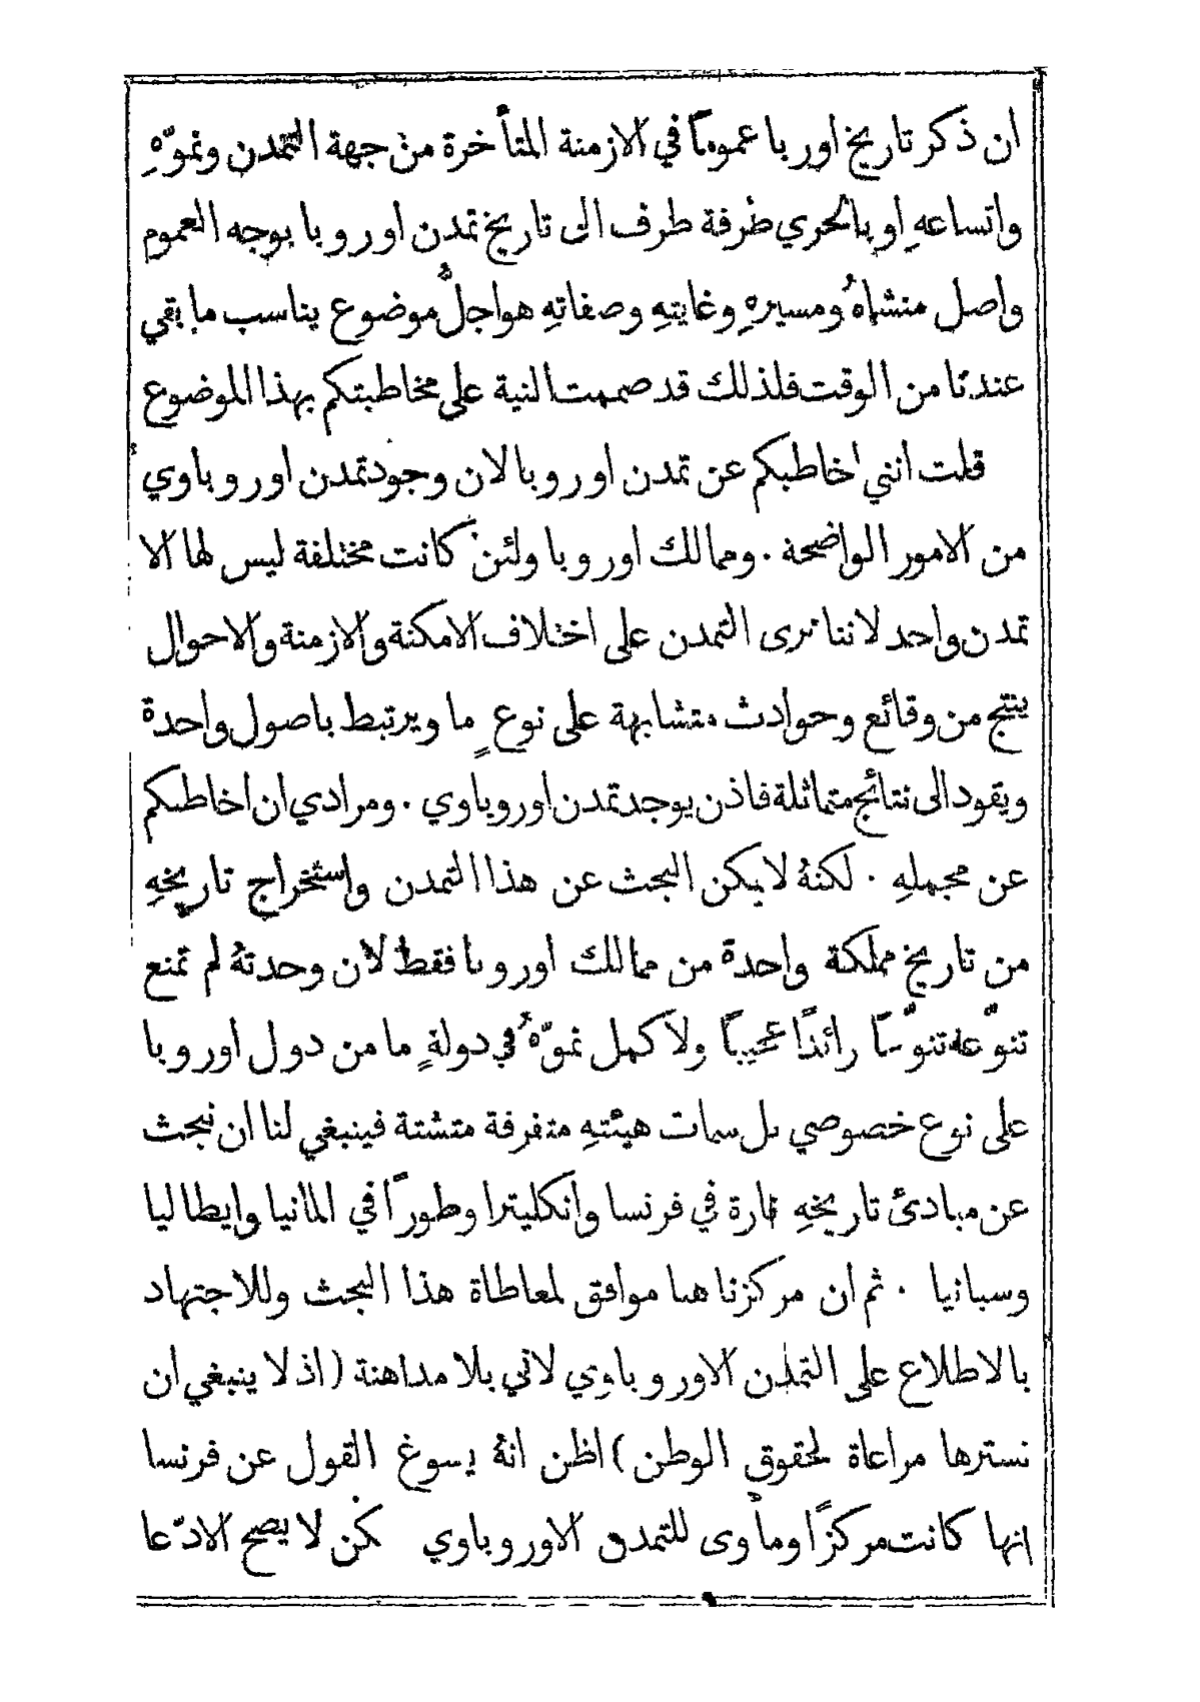 ان ذكر تاريخ اوربا عموماً في الازمنة المتأخرة من جهة التمدن ونموّهِ
واتساعهِ او بالحري طرفة طرف الى تاريخ تمدن اوروبا بوجه العموم
واصل منشاهُ ومسيرهِ وغايتهِ وصفاتهِ هو اجلُّ موضوع يناسب ما بقي
عندنا من الوقت فلذلك قد صممت النية على مخاطبتكم بهذا الموضوع
قلت انني اخاطبكم عن تمدن اوروبا لان وجود تمدن اوروباوي
من الامور الواضحة . وممالك اوروبا ولئن كانت مختلفة ليس لها الا
تمدن واحد لاننا نرى التمدن على اختلاف الامكنة والازمنة والاحوال
ينتج من وقائع وحوادث متشابهة على نوعٍ ما ويرتبط باصول واحدة
ويقود الى نتائج متماثلة فاذن يوجد تمدن اوروباوي . ومرادي ان اخاطبكم
عن مجملهِ . لكنهُ لا يمكن البحث عن هذا التمدن واستخراج تاريخهِ
من تاريخ مملكة واحدة من ممالك اوروبا فقط لان وحدتهُ لم تمنع
تنوّعهُ تنوّعاً زائداً عجيباً ولا كمل نموّهُ في دولةٍ ما من دول اوروبا
على نوع خصوصي بل سمات هيئتهِ متفرقة متشتة فينبغي لنا ان نبحث
عن مبادئ تاريخهِ تارة في فرنسا وانكليترا وطوراً في المانيا وايطاليا
وسبانيا . ثم ان مركزنا هنا موافق لمعاطاة هذا البحث وللاجتهاد
بالاطلاع على التمدن الاوروباوي لاني بلا مداهنة (اذ لا ينبغي ان
نسترها مراعاة لحقوق الوطن) اظن انهُ يسوغ القول عن فرنسا
انها كانت مركزاً ومأوى للتمدن الاوروباوي لكن لا يصح الادّعا